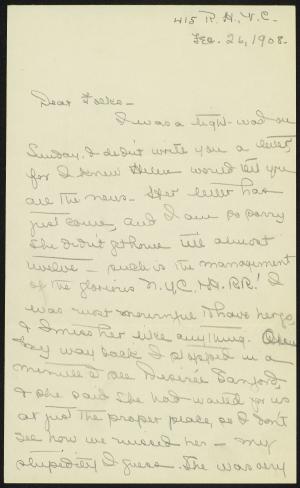 415 R. H., V. C.
Feb. 26, 1908.
Dear Folks -
I was a tight-wad on
Sunday. I didn't write you a letter,
for I knew Helen would tell you
all the news - Her letter has
just come, and I am so sorry
she didn't get home till almost
twelve - such is the management
of the glorious N.Y.C. H.R. RR! I
was most mournful to have her go,
& I miss her like anything. On
my way back I stopped in a
minute to see Desirée Sanford,
& she said she had waited for us
at just the proper place, so I don't
see how we missed her - my
stupidity I guess. She was very